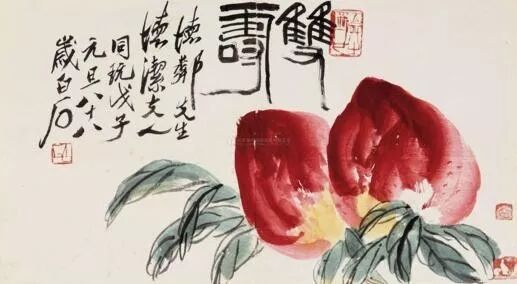 雙壽
德鄰先生
德潔夫人
同玩戊子
元旦八十八
歲白石